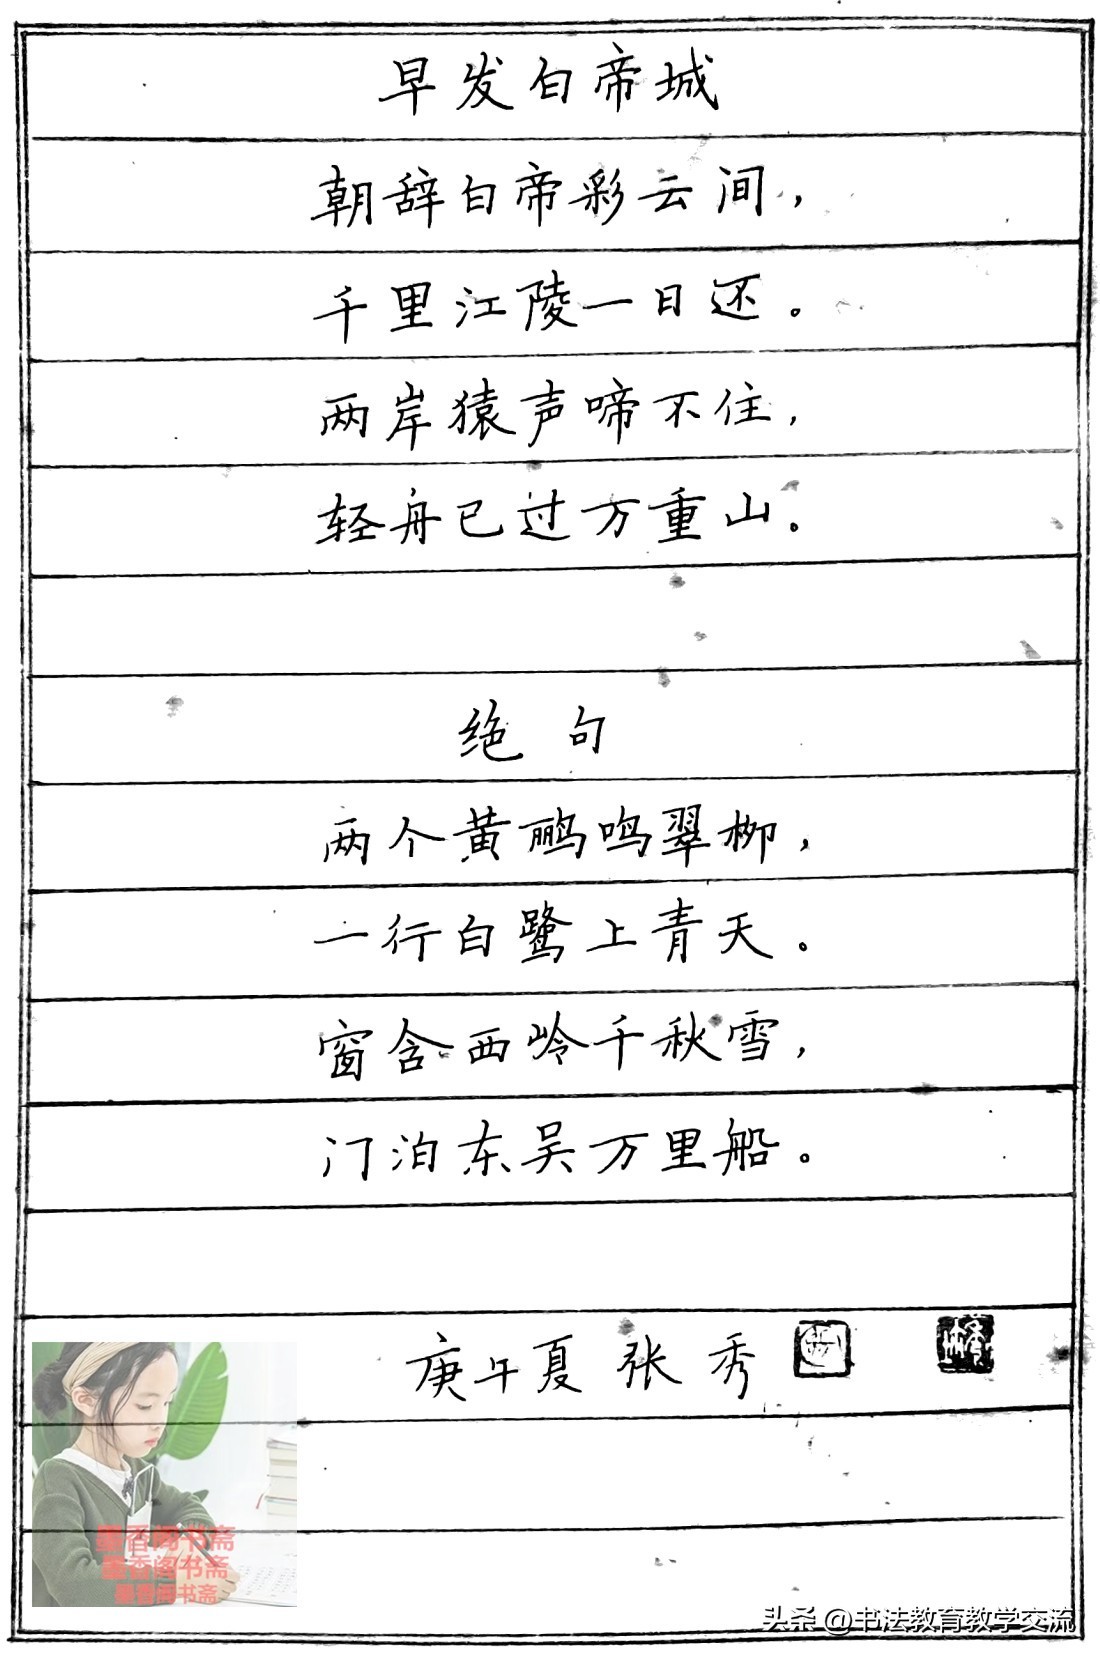 早发白帝城
朝辞白帝彩云间，
千里江陵一日还。
两岸猿声啼不住，
轻舟已过万重山。
绝句
两个黄鹂鸣翠柳，
一行白鹭上青天。
窗含西岭千秋雪，
门泊东吴万里船。
庚午夏 张秀
墨香阁书斋
墨香阁书斋
墨香阁书斋
头条 @书法教育教学交流